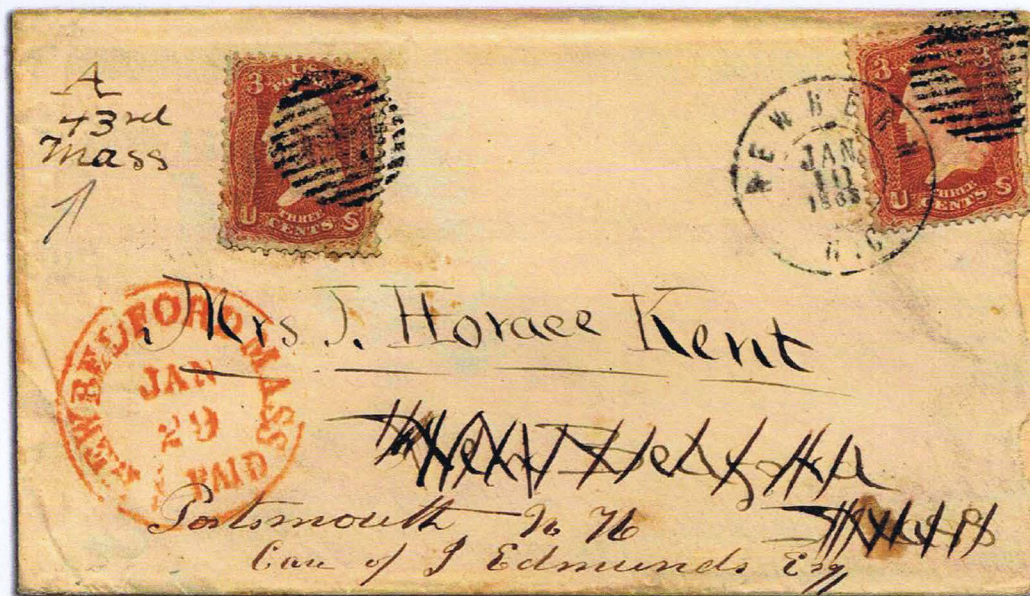 A
43rd
Mass
3 3
U THREE CENTS S
NEW BERN
JAN
10
1863
N.C
3 3
U THREE CENTS S
NEW BEDFORD MASS
JAN
29
PAID
Mrs J. Horace Kent
New Bedford
Mass
Portsmouth N H
Care of J Edmunds Esq